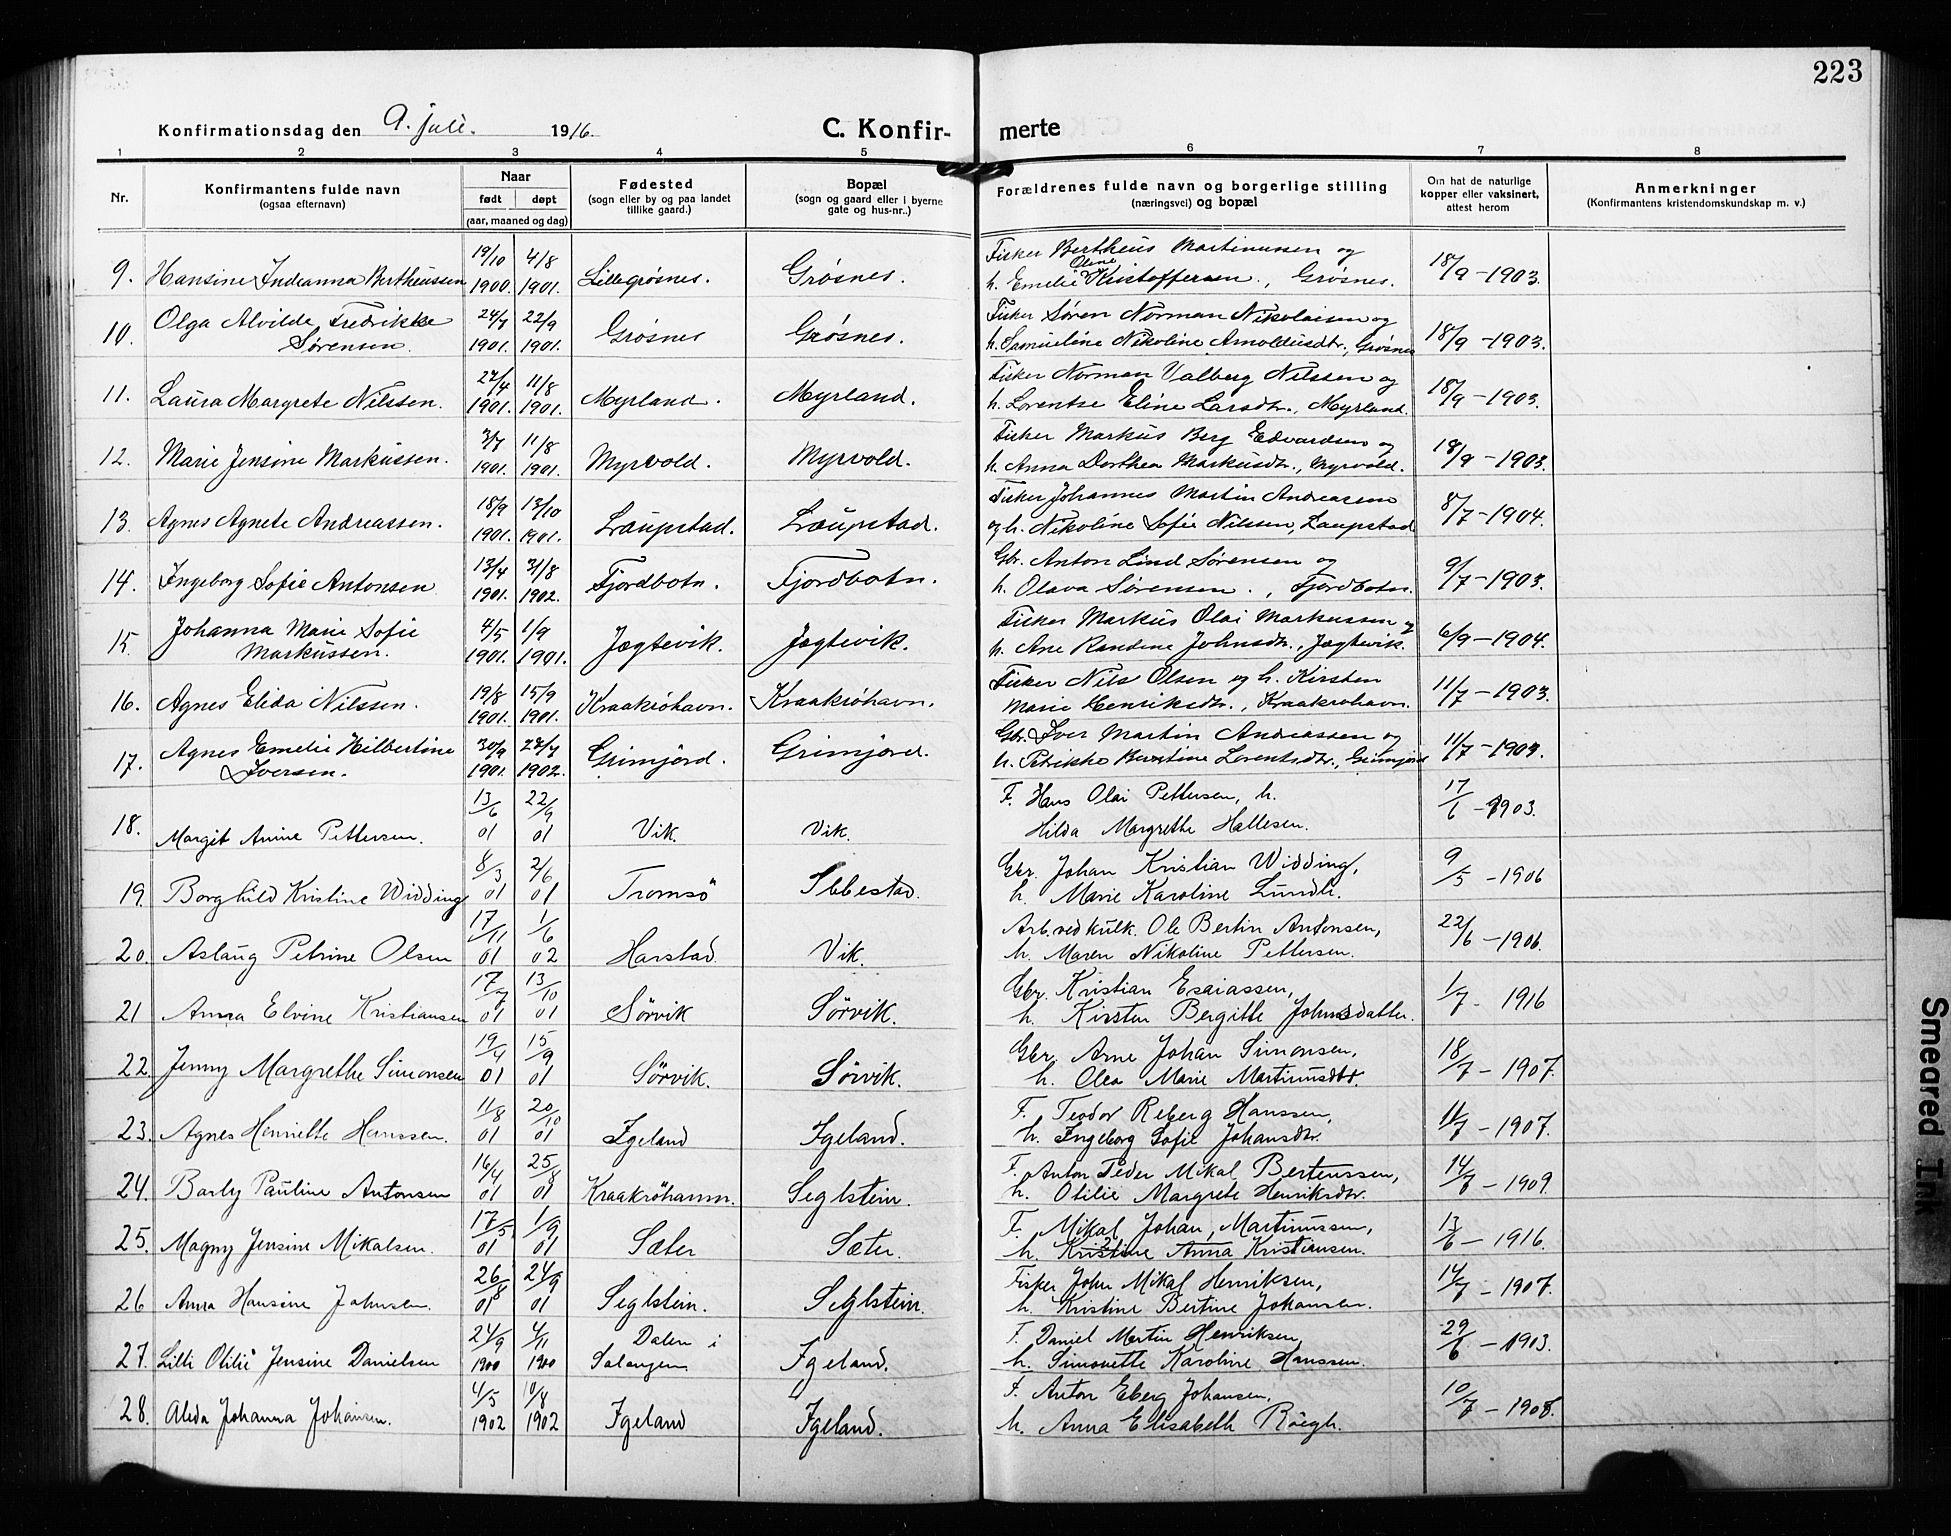 223
Konfirmationsdag den 9. juli. 1916.
C. Konfir-merte
1 2 3 4 5 6 7 8
Nr.
Konfirmantens fulde navn
(ogsaa efternavn)
Naar
født døpt
(aar, maaned og dag)
Fødested
(sogn eller by og paa landet
tillike gaard.)
Bopæl
(sogn og gaard eller i byerne
gate og hus-nr..)
Forældrenes fulde navn og borgerlige stilling
(næringsvei) og bopæl
Om hat de naturlige
kopper eller vaksinert,
attest herom
Anmerkninger
(Konfirmantens kristendomskundskap m. v.)
19/10 4/8 Fisker Bertheus Martinussen og
Oline
9. Hansine Indianna Bertheussen 1900. 1901. Lillegrøsnes. Grøsnes. h. Emelie Kristoffersen., Grøsnes. 18/9 - 1903.
Olga Alvilde Fredrikke 24/7 22/9 Fisker Søren Norman Nikolaisen og
10. Sørensen. 1901. 1901. Grøsnes Grøsnes. h. Samueline Nikoline Arnoldusdtr., Grøsnes 18/9 - 1903.
27/4 11/8 Fisker Norman Valberg Nilssen og
11. Laura Margrete Nilssen. 1901. 1901. Myrland. Myrland. h. Lorentse Eline Larsdtr., Myrland. 18/9 - 1903.
3/7 11/8 Fisker Markus Berg Edvardsen og
12. Marie Jensine Markussen. 1901. 1901. Myrvold. Myrvold. h. Anna Dorthea Markusdtr., Myrvold. 18/9 - 1903.
18/9 13/10 Fisker Johannes Martin Andreassen
13. Agnes Agnete Andreassen. 1901. 1901. Laupstad. Laupstad. og h. Nikoline Sofie Nilssen, Laupstad 8/7 - 1904.
13/4 31/8 Gbr. Anton Lind Sørensen og
14. Ingeborg Sofie Antonsen 1901. 1902. Fjordbotn. Fjordbotn. h. Olava Sørensen., Fjordbotn. 9/7 - 1903.
Johanna Marie Sofie 4/5 1/9 Fisker Markus Olai Markussen og
15. Markussen. 1901. 1901. Jægtevik. Jægtevik. h. Ane Randine Johnsdtr., Jægtevik. 6/9 - 1904.
19/8 15/9 Fisker Nils Olsen og h. Kirsten
16. Agnes Elida Nilssen. 1901. 1901. Kraakrøhavn. Kraakrøhavn. Marie Henriksdtr., Kraakrøhavn. 11/7 - 1903.
Agnes Emelie Hilbertine 30/9 27/7 Gbr. Iver Martin Andreassen og
17. Iversen. 1901. 1902. Grimjord. Grimjord. h. Petrikke Lorentsdtr., Grimjord 11/7 - 1903.
13/6 22/9 F. Hans Olai Pettersen, h.
18. Margit Anine Pettersen. 01 01 Vik. Vik. Hilda Margrethe Hallesen. 17/6 - 1903.
8/3 2/6 Gbr. Johan Kristian Widding,
19. Borghild Kristine Widding 01 01 Tromsö Ibbestad. h. Marie Karoline Lundli. 9/5 - 1906
17/11 1/6 Arb. ved kulk. Ole Bertin Antonsen,
20. Aslaug Petrine Olsen 01 02 Harstad. Vik. h. Maren Nikoline Pettersen. 22/6 - 1906.
17/7 13/10 Gbr. Kristian Esaiassen,
21 Anna Elvine Kristiansen 01 01 Sörvik Sörvik. h. Kirsten Bergitte Johnsdatter. 1/7 - 1916
19/4 15/9 Gbr. Arne Johan Simonsen,
22. Jenny Margrethe Simonsen 01 01 Sörvik. Sörvik. h. Olea Marie Martinusdtr. 18/7 - 1907.
11/8 20/10 F. Teodor Reberg Hanssen,
23. Agnes Henriette Hanssen. 01 01 Igeland Igeland. h. Ingeborg Sofie Johansdtr. 11/7 - 1907.
16/4 25/8 F. Anton Peder Mikal Berteussen,
24. Barly Pauline Antonsen 01 01 Kraakröhamn. Seglstein. h. Otilie Margrete Henriksdtr. 14/6 - 1909.
17/5 1/9 F. Mikal Johan Martinussen,
25. Magny Jensine Mikalsen. 01 01 Sæter Sæter. h. Kristine Anna Kristiansen. 13/6 - 1916.
26/8 24/9 Fisker John Mikal Henriksen,
26 Anna Hansine Johnsen. 01 01 Seglstein. Seglstein. h. Kristine Bertine Johansen. 14/7 - 1907.
24/9 4/11 Dalen i F. Daniel Martin Henriksen,
27. Lilli Otilie Jensine Danielsen 1900 1900 Salangen Igeland. h. Simonette Karoline Hanssen. 29/6 - 1913.
4/5 10/8 F. Anton Eberg Johansen,
28. Alida Johanna Johansen. 1902 1902 Igeland Igeland. h. Anna Elisabeth Röegh. 10/7 - 1908.
Smeared Ink